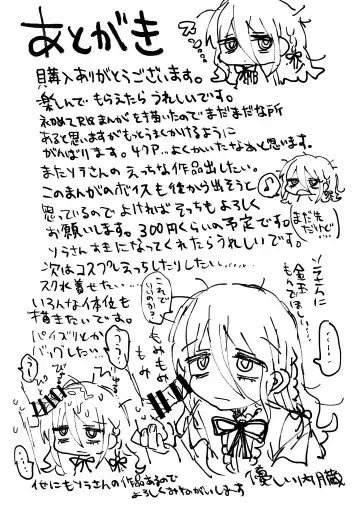 あとがき
購入ありがとうございます。
楽しんでもらえたらうれしいです。
初めてR18まんがを描いたのでまだまだな所
あると思いますがもっとうまくかけるように
がんばります。47P...よくかいたなぁと思います。
またソラさんのえっちな作品出したい。
このまんがのボイスも後から出そうと
思っているのでよければそっちもよろしく
お願いします。300円くらいの予定です。
ソラさんすきになってくれたらうれしいです。
次はコスプレえっちしたりしたい......
スク水着せたい...
いろんな体位も
描きたいです。
パイズリとか
バックしたい...
まだ先
だけど...
これで
いいのか?
シエスタに
金玉
もんでほしい...
もみ
もみ
もみ
他にもソラさんの作品あるので
よろしくおねがいします
優しい内臓